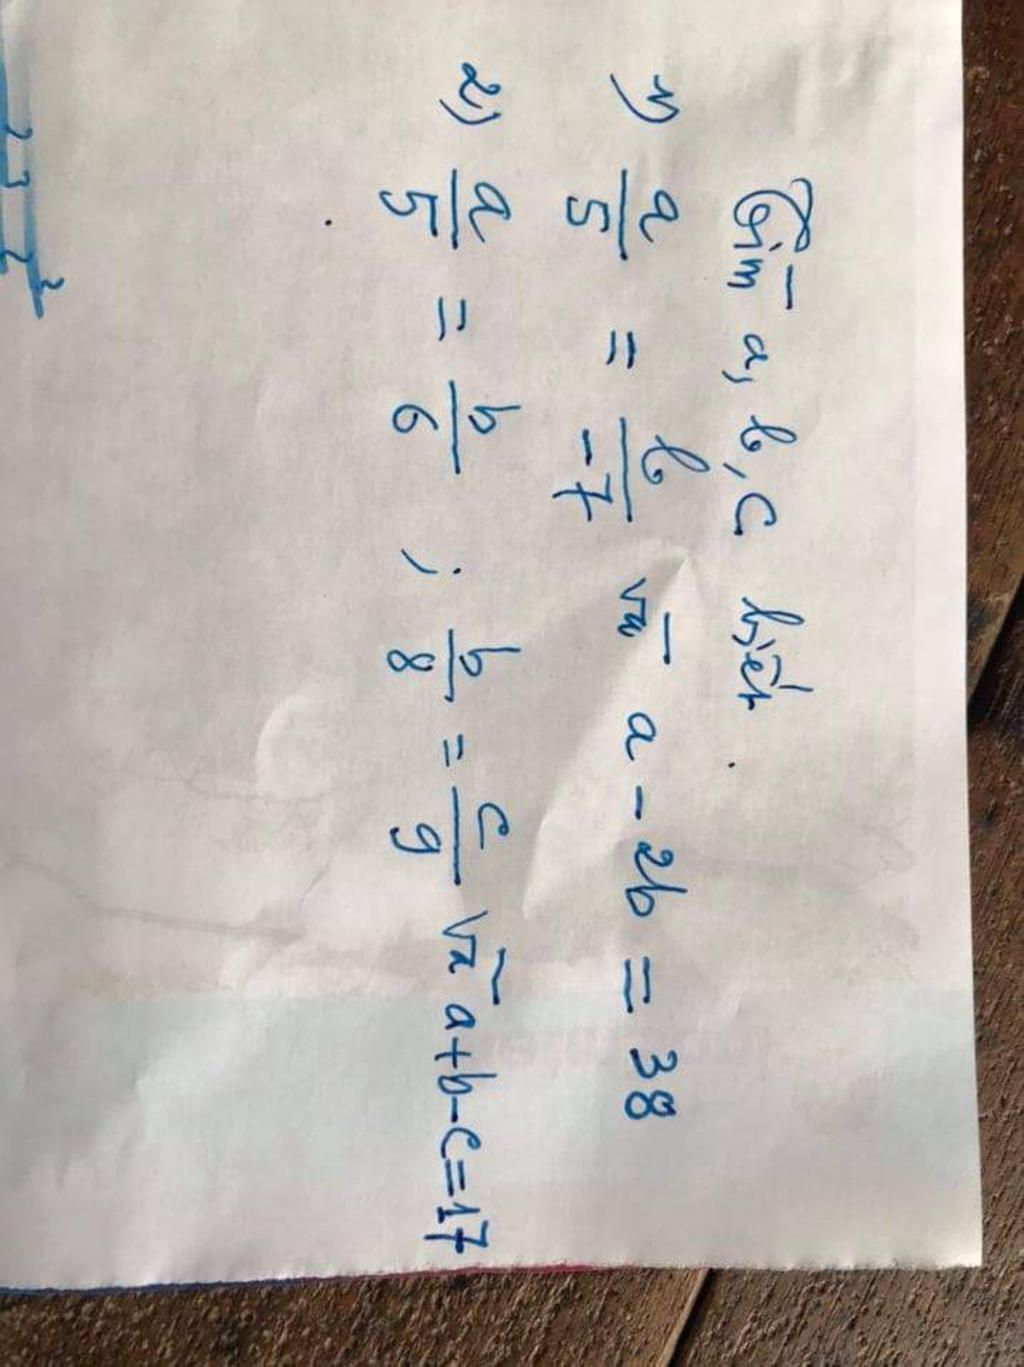 Tìm a, b, c biết.
1) a/5 = b/-7 và a - 2b = 38
2) a/5 = b/6 ; b/8 = c/9 và a+b-c=17